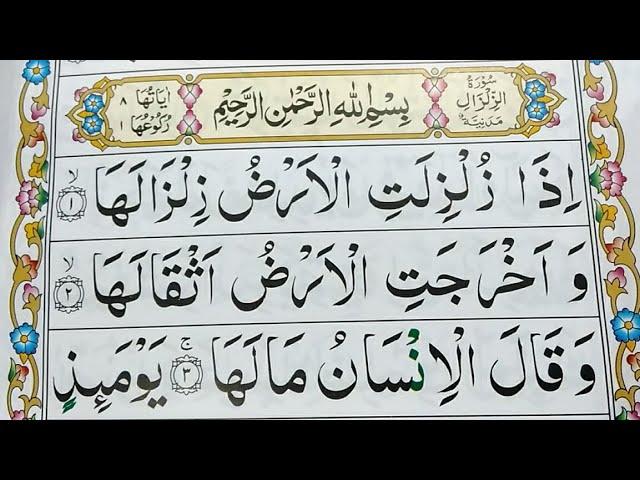 سُوْرَةُ الزِّلْزَالِ مَدَنِيَّةٌ
بِسْمِ اللهِ الرَّحْمٰنِ الرَّحِيْمِ
اٰيَاتُهَا ٨ رُكُوْعُهَا ١
اِذَا زُلْزِلَتِ الْاَرْضُ زِلْزَالَهَا ۙ ١
وَ اَخْرَجَتِ الْاَرْضُ اَثْقَالَهَا ۙ ٢
وَقَالَ الْاِنْسَانُ مَا لَهَا ۚ ٣ يَوْمَئِذٍ